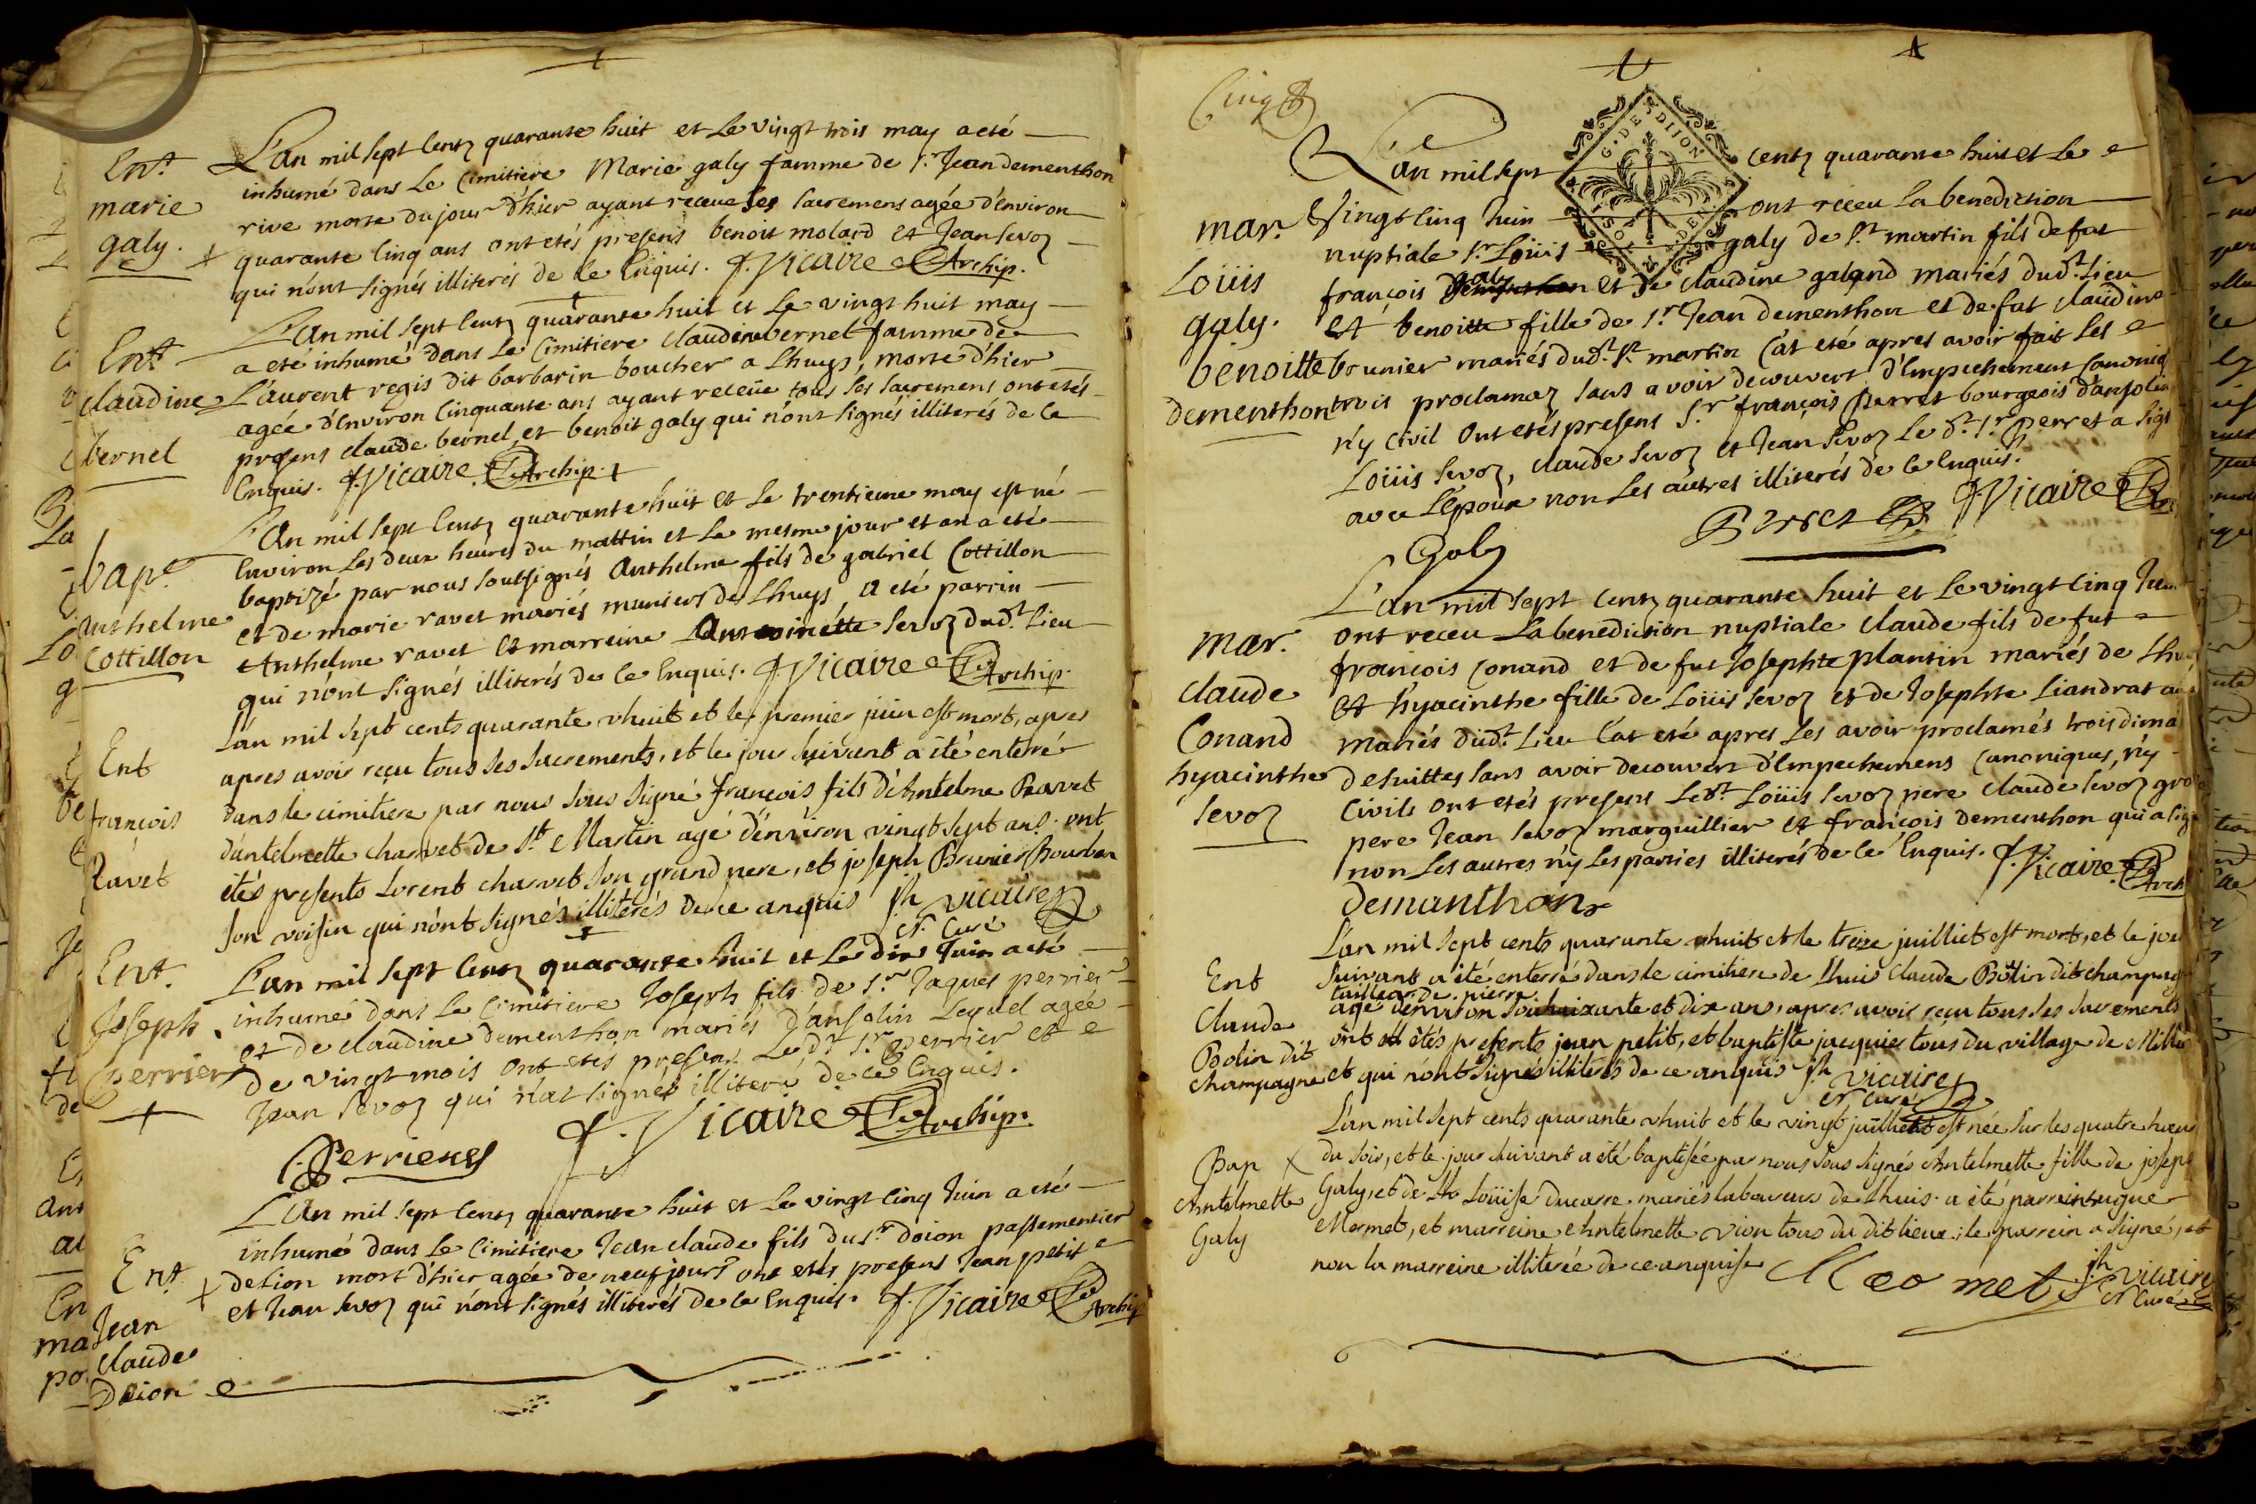 Ent.
marie
galy.
L'an mil sept Centz quarante huit et Le vingt trois may a eté
inhumé dans Le Cimitiere Marie galy famme de Sr. Jean dementhon
rive morte du jour d'hier ayant receue ses sacremens agée d'environ
quarante Cinq ans ont etés presens benoit molard et Jean Sevoz
qui n'ont signés illiterés de ce Enquis. J. Vicaire Archip.
Ent.
claudine
bernel
L'an mil sept Centz quarante huit et Le vingt huit may
a eté inhumé dans Le Cimitiere Claudine bernel famme de
Laurent regis dit barbarin boucher a Lhuys, morte d'hier
agée d'Environ Cinquante ans ayant receüe tous ses sacremens ont etés
presens claude bernel et benoit galy qui n'ont signés illiterés de ce
Enquis. J. Vicaire Archip.
bap.
Anthelme
Cottillon
L'an mil sept Centz quarante huit et Le trentieme may est né
Environ Les deux heures du mattin et Le mesme jour et an a eté
baptizé par nous soussignés Anthelme fils de gabriel Cottillon
et de marie ravet mariés muniers de Lhuys, a eté parrin
Anthelme ravet et marreine Antoinette Sevoz dud. Lieu
qui n'ont signés illiterés de ce Enquis. J. Vicaire Archip.
Ent
françois
Ravet
L'an mil sept cents quarante vhuit et le premier juin est mort, apres
apres avoir reçu tous ses sacrements, et le jour suivant a été enterré
dans le cimitiere par nous sous signé françois fils d'Antelme Ravet
d'antelmette charvet de St. Martin agé d'environ vingt sept ans ont
étés presents Lorent charvet son grand pere, et joseph Brunier Bourbon
son voisin qui n'ont signés illiterés de ce anquis jh vicaire
et Curé
Ent.
Joseph
perrier
L'an mil sept Centz quarante huit et Le dix Juin a eté
inhumé dans Le Cimitiere Joseph fils de Sr. Jaques perrier
et de claudine dementhon mariés d'ansolin Lequel agée
de vingt mois ont etés presens Le dt. Sr. perrier et
Jean Sevoz qui n'at signés illiteré de ce Enquis.
Perrier J. Vicaire Archip.
Ent.
Jean
claude
Doion
L'an mil sept Centz quarante huit et Le vingt Cinq Juin a eté
inhumé dans Le Cimitiere Jean claude fils du Sr. doion passementier
de Lion mort d'hier agée de neuf jours ont etés presens Jean petit
et Jean Sevoz qui n'ont signés illiterés de ce Enquis. J. Vicaire Archip
Cinq
G. DES DIJON
SOLS DEN
mar.
Loüis
galy.
benoitte
dementhon
L'an mil sept Centz quarante huit et Le
Vingt Cinq Juin ont receu La benediction
nuptiale Sr. Loüis galy de St. martin fils de fut
françois galy et de claudine galand mariés dud. Lieu
et benoitte fille de Sr. Jean dementhon et de fut claudine
brunier mariés dud. St. martin C'at eté apres avoir fait Les
trois proclamaz sans avoir decouvert d'Empechement Canoniq
n'y Civil Ont etés presens Sr. françois Perret bourgeois d'ansolin
Loüis Sevoz, claude Sevoz et Jean Sevoz Le dt. Sr. perret a sig
avec L'epoux non Les autres illiterés de ce Enquis.
Perret J. Vicaire
Galy
mar.
claude
Conand
hyacinthe
Sevoz
L'an mil sept Centz quarante huit et Le vingt Cinq Juin
ont receu La benediction nuptiale claude fils de fut
françois Conand et de fut Josephte plantin mariés de Lhu
et hyacinthe fille de Loüis Sevoz et de Josephte Liandrat au
mariés dud. Lieu C'at eté apres Les avoir proclamés trois dima
de suittes sans avoir decouvert d'Empechemens Canoniques, n'y
Civils ont etés presens Le dt. Loüis Sevoz pere claude Sevoz gr
pere Jean Sevoz marguillier et françois dementhon qui a sig
non Les autres n'y Les parties illiterés de ce Enquis. J. Vicaire Arch
Demanthon
Ent
Claude
Botin dit
champagne
L'an mil sept cents quarante vhuit et le treize juilliet est mort, et le jou
suivant a été enterré dans le cimitiere de lhuis Claude Botin dit champag
tailleur de pierre
agé d'environ soixante et dix ans, apres avoir reçu tous ses sacrements
ont étés presents jean petit, et baptiste jacquier tous du village de Millie
et qui n'ont signés illiterés de ce anquis jh vicaire
et Curé
Bap
Antelmette
Galy
L'an mil sept cents quarante vhuit et le vingt juilliet est née sur les quatre heur
du soir, et le jour suivant a été baptisée par nous sous signés Antelmette fille de joseph
Galy, et de Loüise Ducarre mariés laboureur de lhuis a été parrein
Mermet, et marreine Antelmette vion tous du dit lieux; le parrein a signé, et
non la marreine illiterée de ce anquise jh vicaire
et Curé